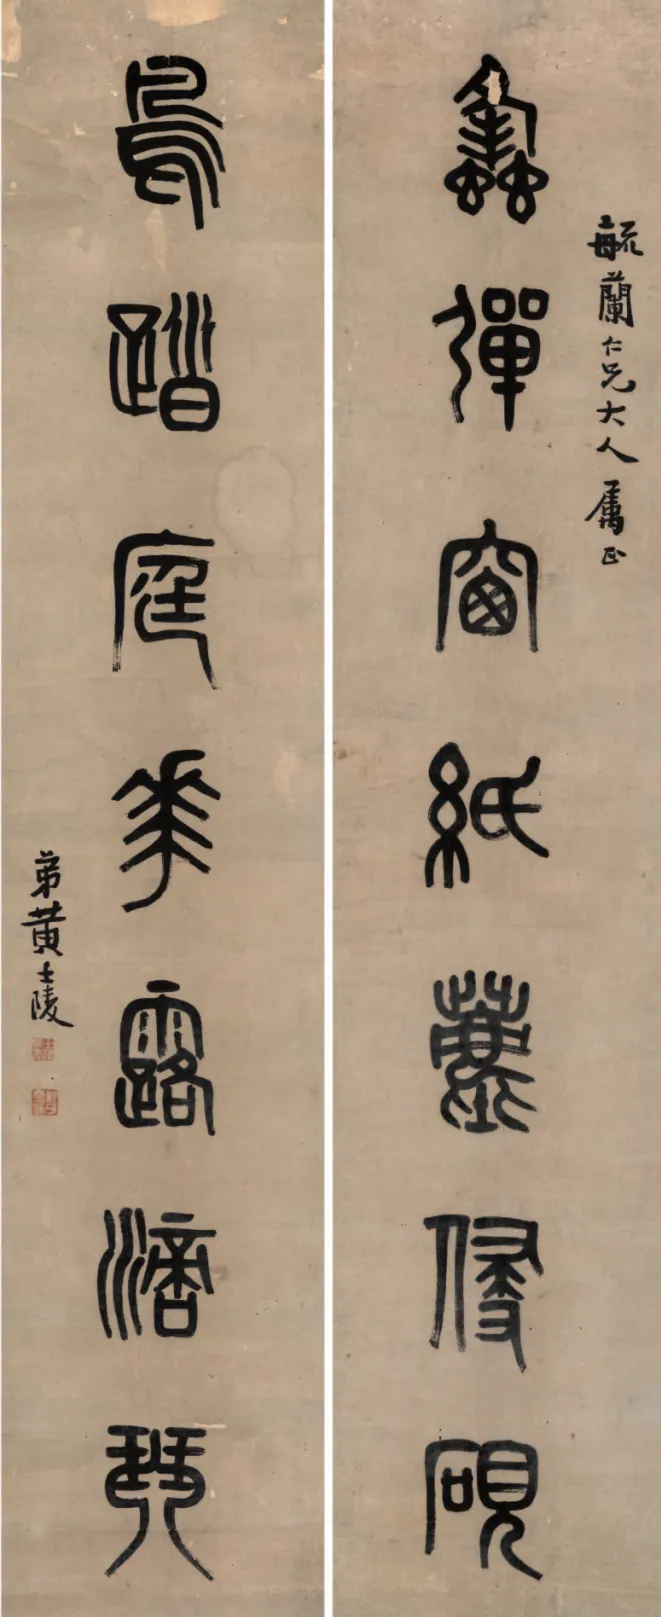 毓蘭仁兄大人屬正
蠭彈窗紙塵侵硯
鳥踏庭花露滴琴
弟黃士陵